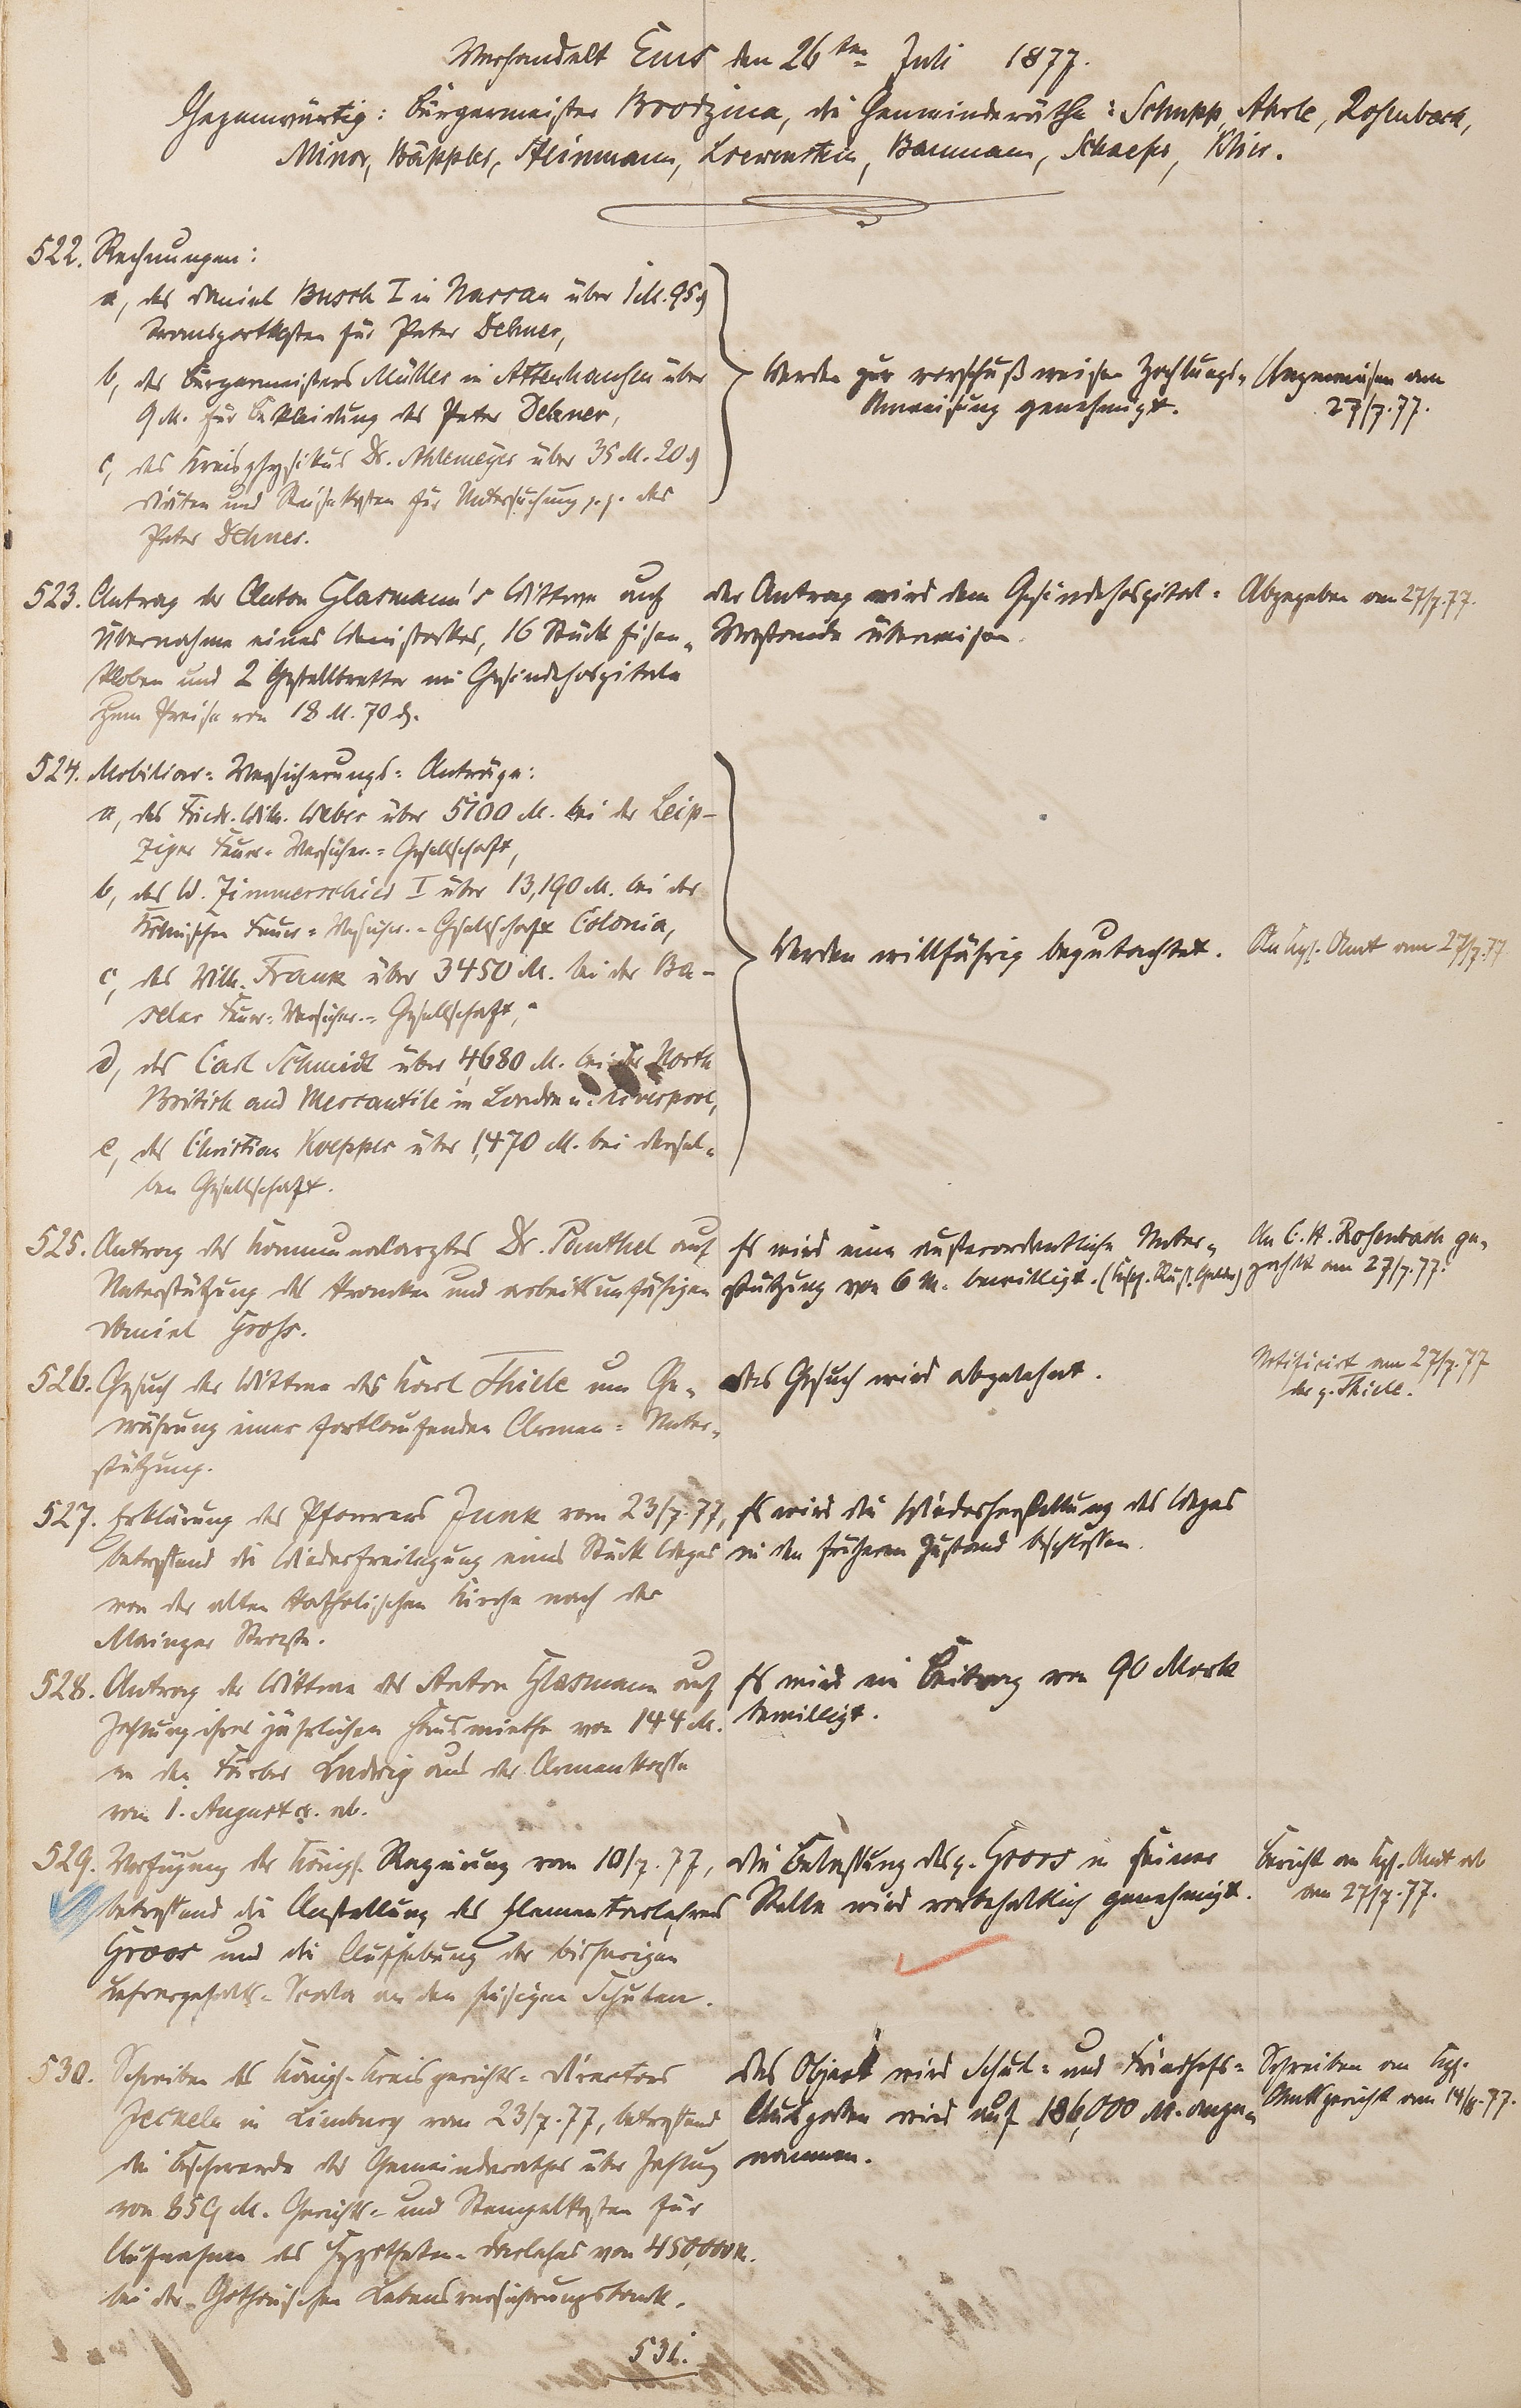 Verhandelt Ems den 26ten Juli 1877.
Gegenwärtig: Bürgermeister Brodzina, die Gemeinderäthe: Schupp, Ahrle, Rosenbach,
Minor, Käppler, Steinmann, Loewenstein, Baumann, Schaefer,
522. Rechnungen:
a, des Daniel Busch I in Nassau über 1 M. 95 ₰
Transportkosten für Peter Dehner,
b, des Bürgermeisters Müller in Attenhausen über
9 M. für Bekleidung des Peter Dehner,
c, des Kreisphysikus Dr. Ahlemeyer über 35 M. 20 ₰
Diäten und Reisekosten für Untersuchung p. p. des
Peter Dehner.
Werden zur vorschußweisen Zahlungs-
Anweisung genehmigt.
Angewiesen am
27/7.77.
523. Antrag der Anton Glasmann's Wittwe auf
Übernahme eines 16 Stück Eisen-
kloben und 2 Gestellbretter im Gesindehospitale
zum Preise von 18 M. 70 ₰.
Der Antrag wird dem Gesindehospital-
Vorstande überwiesen.
Abgegeben am 27/7.77.
524. Mobiliar-Versicherungs-Anträge:
a, des Friedr. Wilh. Weber über 5100 M. bei der Leip-
ziger Feuer-Versicher.-Gesellschaft,
b, des W. Zimmerschied I über 13,190 M. bei der
Kölnischen Feuer-Versicher.-Gesellschaft Colonia,
c, des Wilh. Frank über 3450 M. bei der Ba-
seler Feuer-Versicher.-Gesellschaft,
d, des Carl Schmidt über 4,680 M. bei der North
British and Mercantile in London u. Liverpool,
e, des Christian Koepper über 1,470 M. bei dersel-
ben Gesellschaft.
Werden willfährig begutachtet.
An Kgl. Amt am 27/7.77
525. Antrag des Kommunalarztes Dr. Panthel auf
Unterstützung des kranken und arbeitsunfähigen
Daniel Gross.
Es wird eine außerordentliche Unter-
stützung von 6 M. bewilligt.
An C. H. Rosenbach ge-
zahlt am 27/7.77.
526. Gesuch der Wittwe des Karl Thiele um Ge-
währung einer fortlaufenden Armen-Unter-
stützung.
Das Gesuch wird abgelehnt.
Notificirt am 27/7.77
der p. Thiele.
527. Erklärung des Pfarrers Junk vom 23/7.77,
betreffend die Wiederfreilegung eines Stück Weges
von der alten katholischen Kirche nach der
Mainzer Strasse.
Es wird die Wiederherstellung des Weges
in den früheren Zustand beschlossen.
528. Antrag der Wittwe des Anton Glasmann auf
Zahlung ihrer jährlichen Hausmiethe von 144 M.
an den Färber Ludwig aus der Armenkasse
vom 1. August cr. ab.
Es wird ein Beitrag von 90 Mark
bewilligt.
529. Verfügung der Königl. Regierung vom 10/7.77,
betreffend die Anstellung des Elementarlehrers
Groos und die Aufhebung der bisherigen
Lehrergehalts-Scala an den hiesigen Schulen.
Die Belassung des p. Groos in seiner
Stelle wird vorbehaltlich genehmigt.
Bericht an Kgl. Amt ab
am 27/7.77.
530. Schreiben des Königl. Kreisgerichts-Directors
Jeckeln in Limburg vom 23/7.77, betreffend
die Beschwerde des Gemeinderathes über Zahlung
von 859 M. Gerichts- und Stempelkosten für
Aufnahme des Hypotheken-Darlehns von 450,000 M.
bei der Gothaischen Lebensversicherungsbank.
Das Object wird Schul- und Friedhofs-
Ausgaben wird auf 186,000 M. ange-
nommen.
Schreiben an Kgl.
Amtsgericht am 14/8.77.
531.